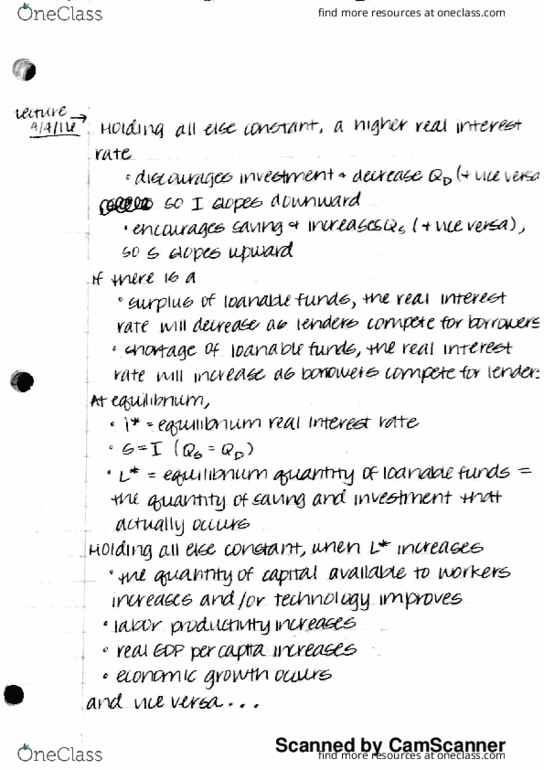 OneClass
find more resources at oneclass.com
Lecture →
4/4/16
Holding all else constant, a higher real interest
rate
• discourages investment + decrease QD (+ vice versa
so I slopes downward
• encourages saving + increases QS (+ vice versa),
so S slopes upward
If there is a
• surplus of loanable funds, the real interest
rate will decrease as lenders compete for borrowers
• shortage of loanable funds, the real interest
rate will increase as borrowers compete for lenders
At equilibrium,
• i* = equilibrium real interest rate
• S = I (QS = QD)
• L* = equilibrium quantity of loanable funds =
the quantity of saving and investment that
actually occurs
Holding all else constant, when L* increases
• the quantity of capital available to workers
increases and/or technology improves
• labor productivity increases
• real GDP per capita increases
• economic growth occurs
and vice versa...
Scanned by CamScanner
OneClass
find more resources at oneclass.com